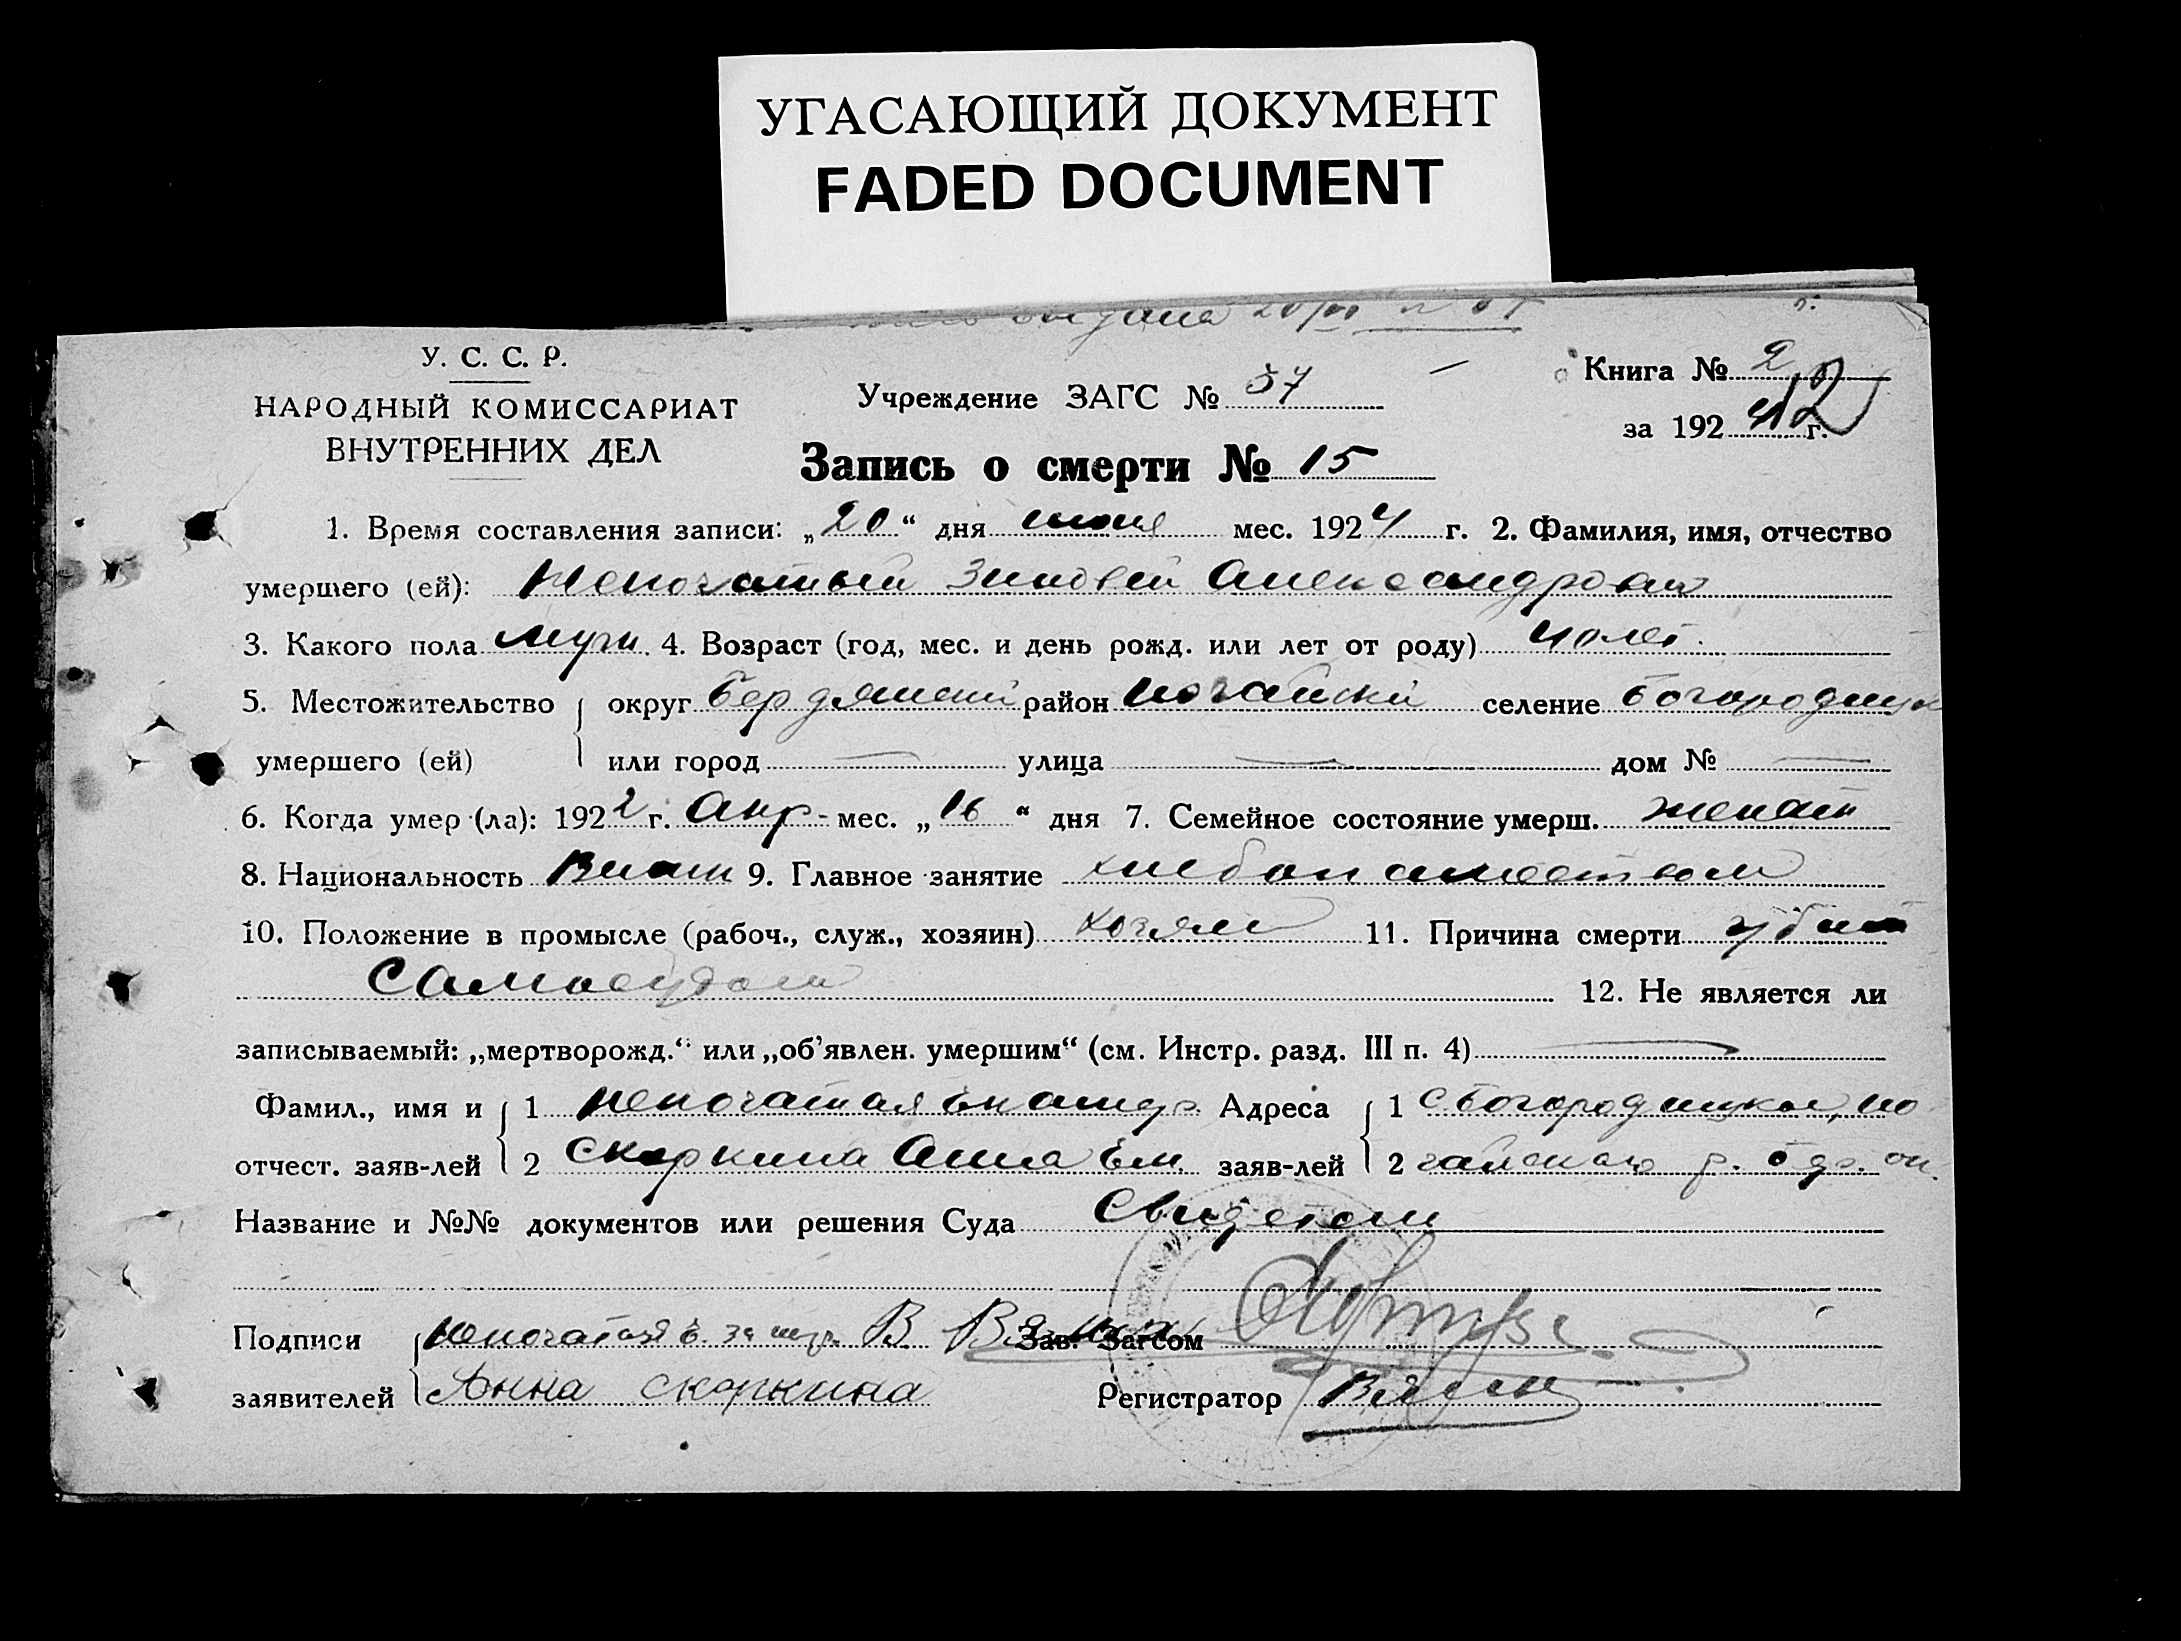 УГАСАЮЩИЙ ДОКУМЕНТ
FADED DOCUMENT
У. С. С. Р.
НАРОДНЫЙ КОМИССАРИАТ
ВНУТРЕННИХ ДЕЛ
Учреждение ЗАГС № 37
Книга № 2
за 1924 г.
12
Запись о смерти № 15
1. Время составления записи: „20“ дня июня мес. 1924 г. 2. Фамилия, имя, отчество
умершего (ей): Непочатый Зиновей Александрович
3. Какого пола муж. 4. Возраст (год, мес. и день рожд. или лет от роду) 40 лет.
5. Местожительство округ Бердянский район Ногайский селение Богородицк
умершего (ей) или город — улица — дом № —
6. Когда умер (ла): 1922 г. Апр- мес. „16“ дня 7. Семейное состояние умерш. женат
8. Национальность 9. Главное занятие хлебопашеством
10. Положение в промысле (рабоч., служ., хозяин) хозяин 11. Причина смерти убит
самосудом 12. Не является ли
записываемый: „мертворожд.“ или „об’явлен. умершим“ (см. Инстр. разд. III п. 4) —
Фамил., имя и 1 Непочатая Адреса 1 с Богородицкое, но
отчест. заяв-лей 2 Скоркина Анна Ем. заяв-лей 2 гайского р. Бер. ок.
Название и №№ документов или решения Суда Свидетели
Подписи Непочатая Зав. Загсом
заявителей Анна Скоркина Регистратор